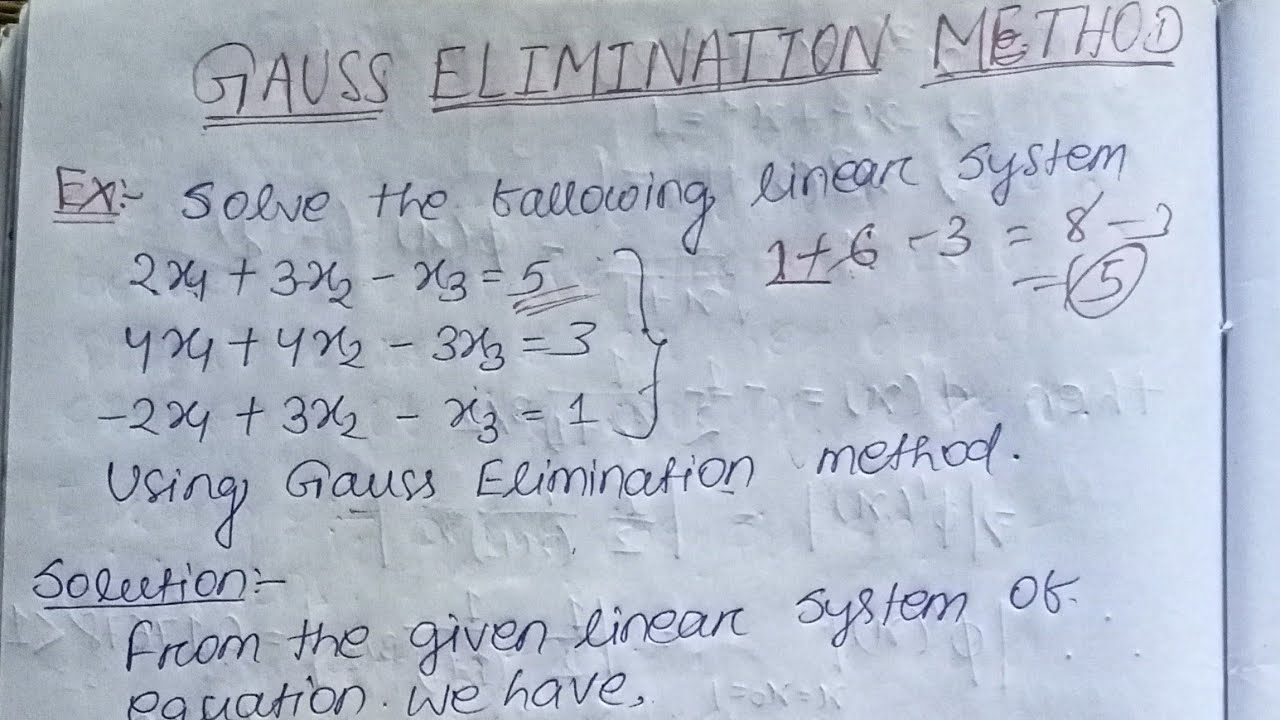 GAUSS ELIMINATION METHOD
Ex:- Solve the following linear system
2x1 + 3x2 - x3 = 5
1+6 -3 = 8 - 3
= 5
4x1 + 4x2 - 3x3 = 3
-2x1 + 3x2 - x3 = 1
Using Gauss Elimination method.
Solution:-
From the given linear system of
equation. we have,